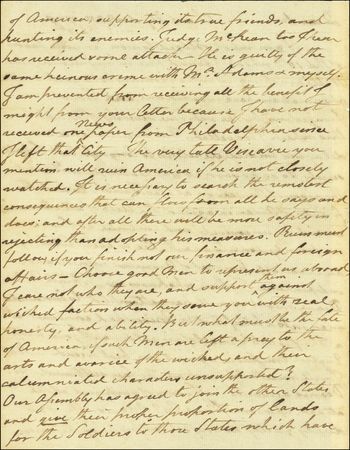 of America, supporting its true friends, and
hunting its enemies. Judge McKean too I fear
has received some attack — He is guilty of the
same heinous crime with Mr. Adams & myself.
I am prevented from receiving all the benefit I
might from your letter because I have not
received one News paper from Philadelphia since
I left that City — The very tall you
mention will ruin America if he is not closely
watched. It is necessary to search the remotest
consequences that can flow from all he says and
does; and after all there will be more safety in
rejecting than adopting his measures. Ruin must
follow if you finish not our finance and foreign
affairs — Choose good Men to represent us abroad
I care not who they are, and support them against
wicked faction when they serve you with zeal
honesty, and ability. But what must be the fate
of America, if such Men are left a prey to the
arts and avarice of the wicked, and their
calumniated characters unsupported?
Our Assembly has agreed to join the other States
and give their proper proportion of lands
for the Soldiers to those States which have